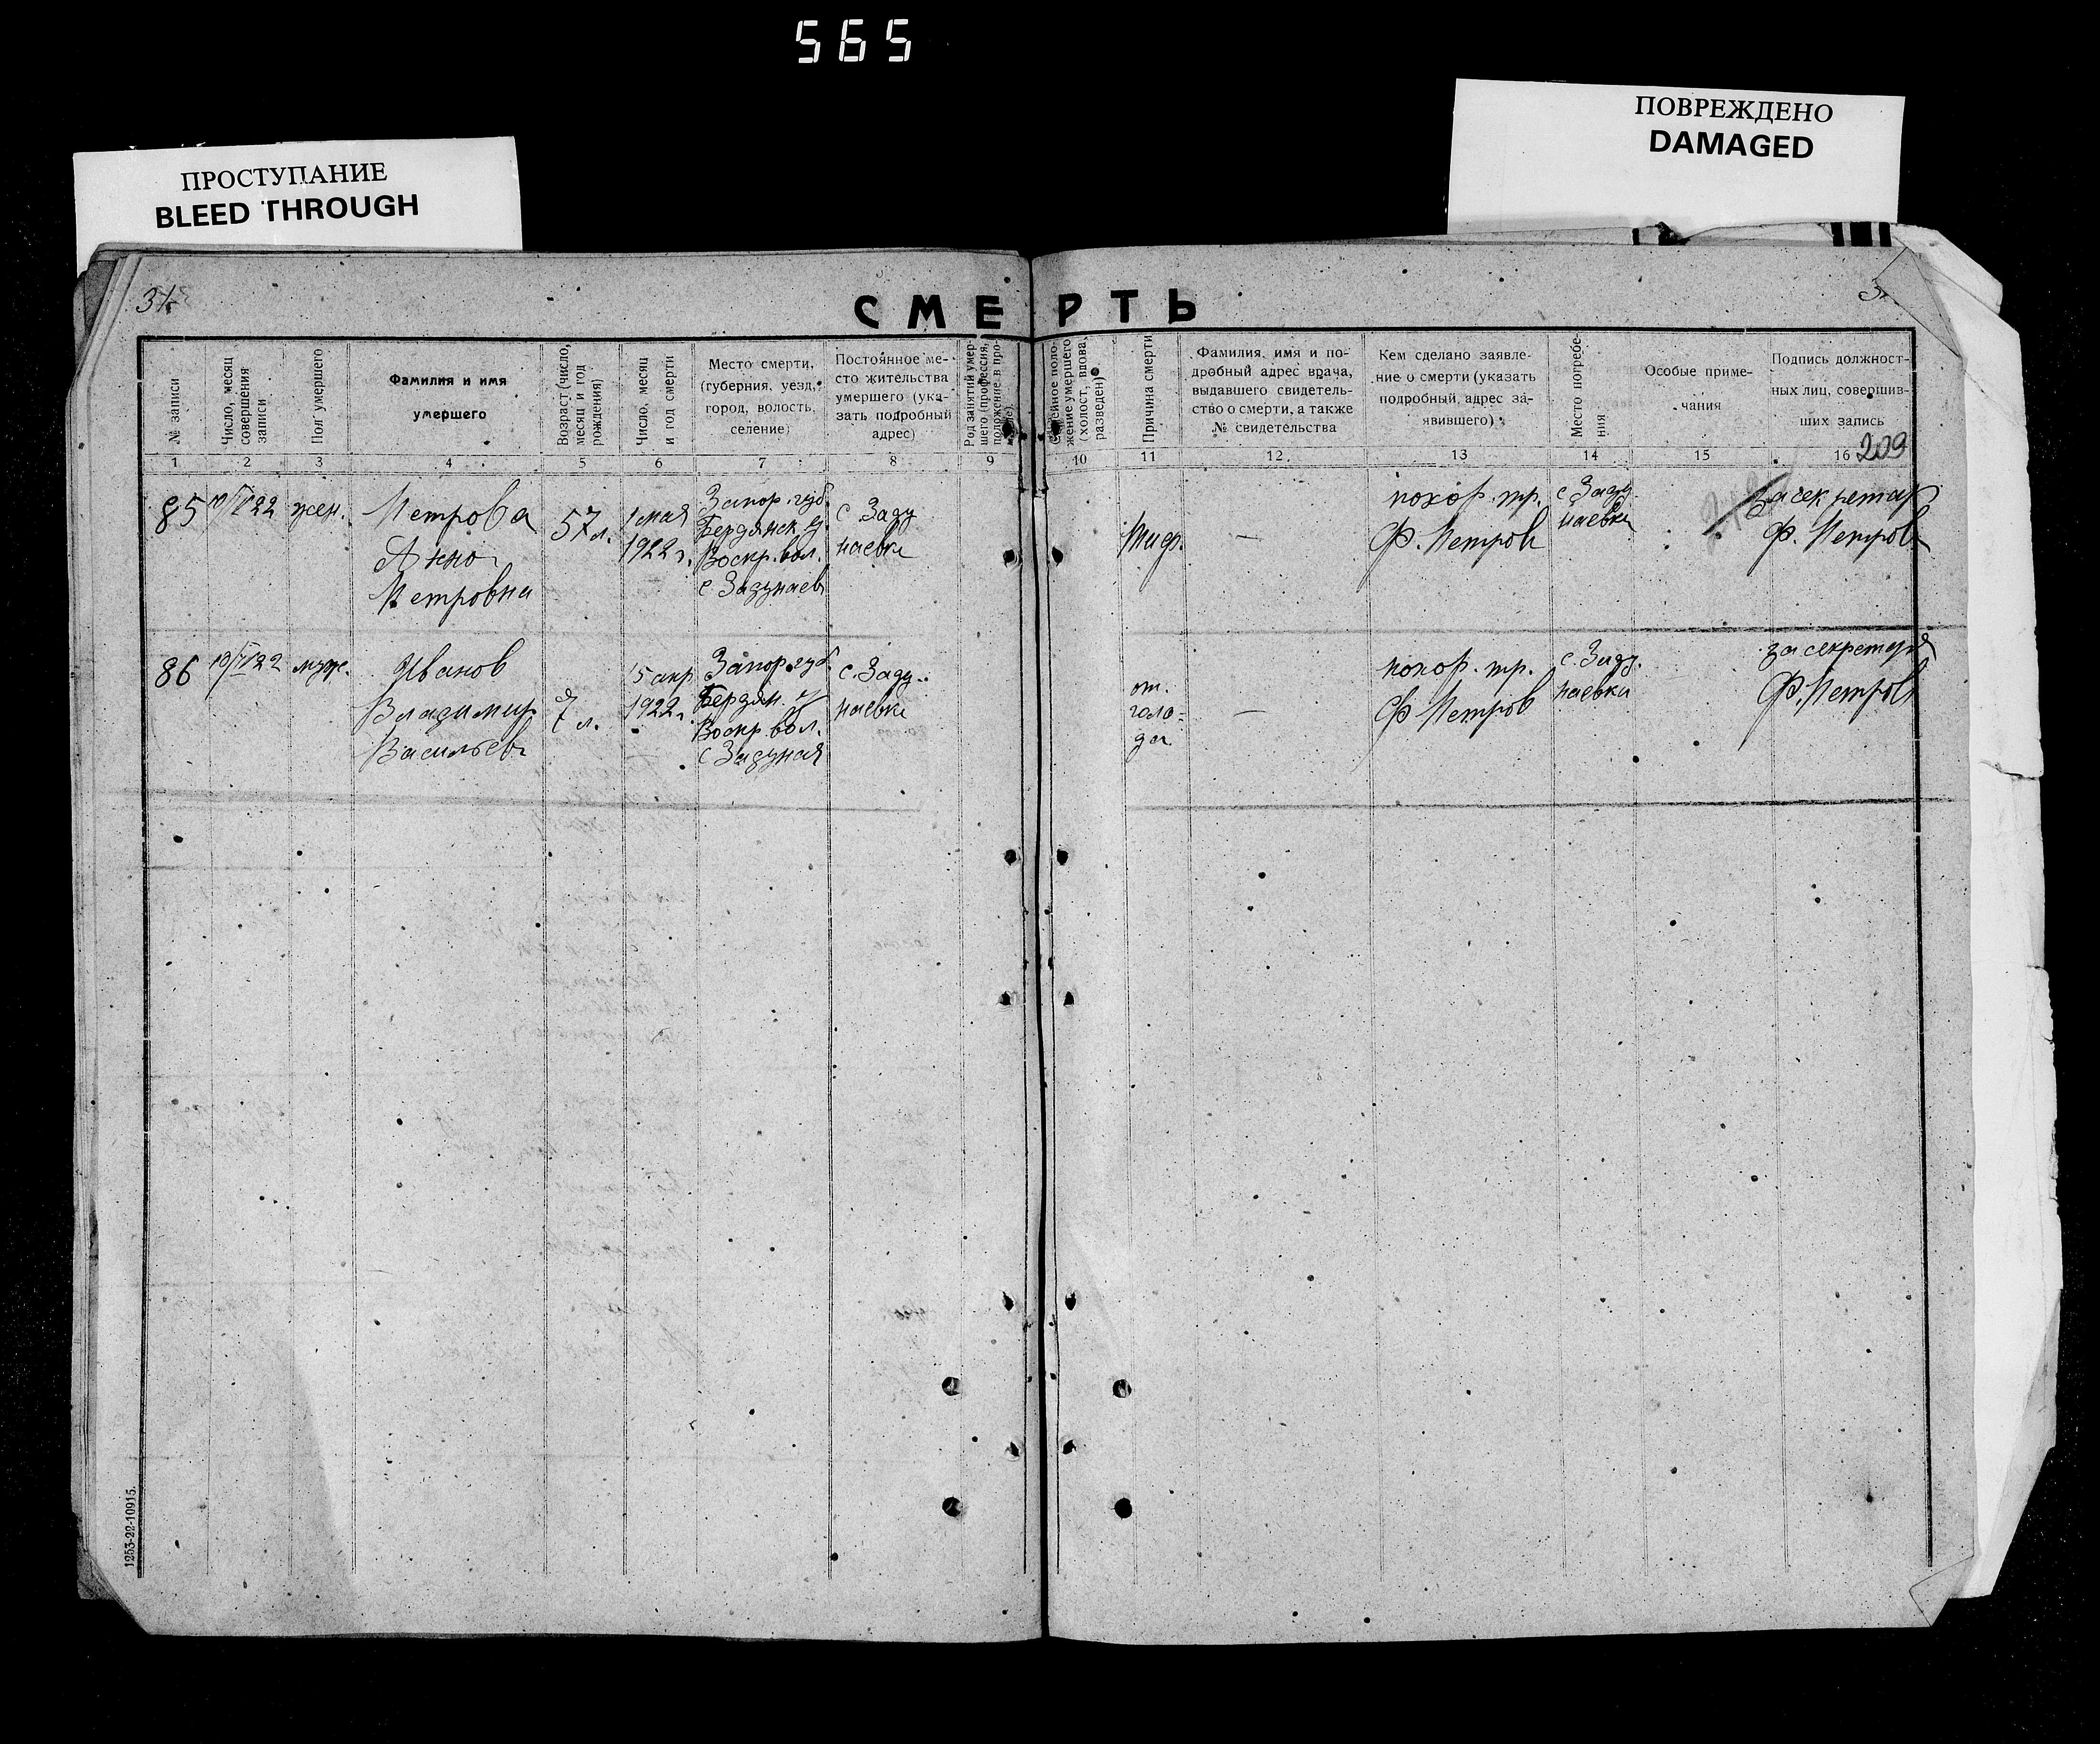 565
ПРОСТУПАНИЕ
BLEED THROUGH
ПОВРЕЖДЕНО
DAMAGED
СМЕРТЬ
№ записи
Число, месяц
совершения
записи
Пол умершего
Фамилия и имя
умершего
Возраст (число,
месяц и год
рождения)
Число, месяц
и год смерти
Место смерти,
(губерния, уезд,
город, волость,
селение)
Постоянное ме-
сто жительства
умершего (ука-
зать подробный
адрес)
Род занятий умер-
шего (профессия,
положение в про-
Семейное поло-
жение умершего
(холост, вдова,
разведен)
Причина смерти
Фамилия, имя и по-
дробный адрес врача,
выдавшего свидетель-
ство о смерти, а также
№ свидетельства
Кем сделано заявле-
ние о смерти (указать
подробный, адрес за-
явившего)
Место погребе-
ния
Особые приме-
чания
Подпись должност-
ных лиц, совершив-
ших запись
209
1 2 3 4 5 6 7 8 9 10 11 12 13 14 15 16
85
жен.
Петрова
Анна
Петровна
57 л.
1 мая
1922 г.
Запор. губ.
Бердянск у.
Воскр. вол.
с Задунаев
с Заду
наевка
Тиф.
—
похор. тр.
Ф. Петров
с Заду
наевка
За секретар
Ф. Петров
86
муж.
Иванов
Владимир
Васильев
7 л.
15 апр
1922 г.
Запор. губ
Бердян. у
Воскр. вол.
с Задуная
с. Заду-
наевка
от.
голо-
да
—
похор. тр.
Ф Петров
с. Заду.
наевка
за секретаря
Ф. Петров
1253-22-10915.